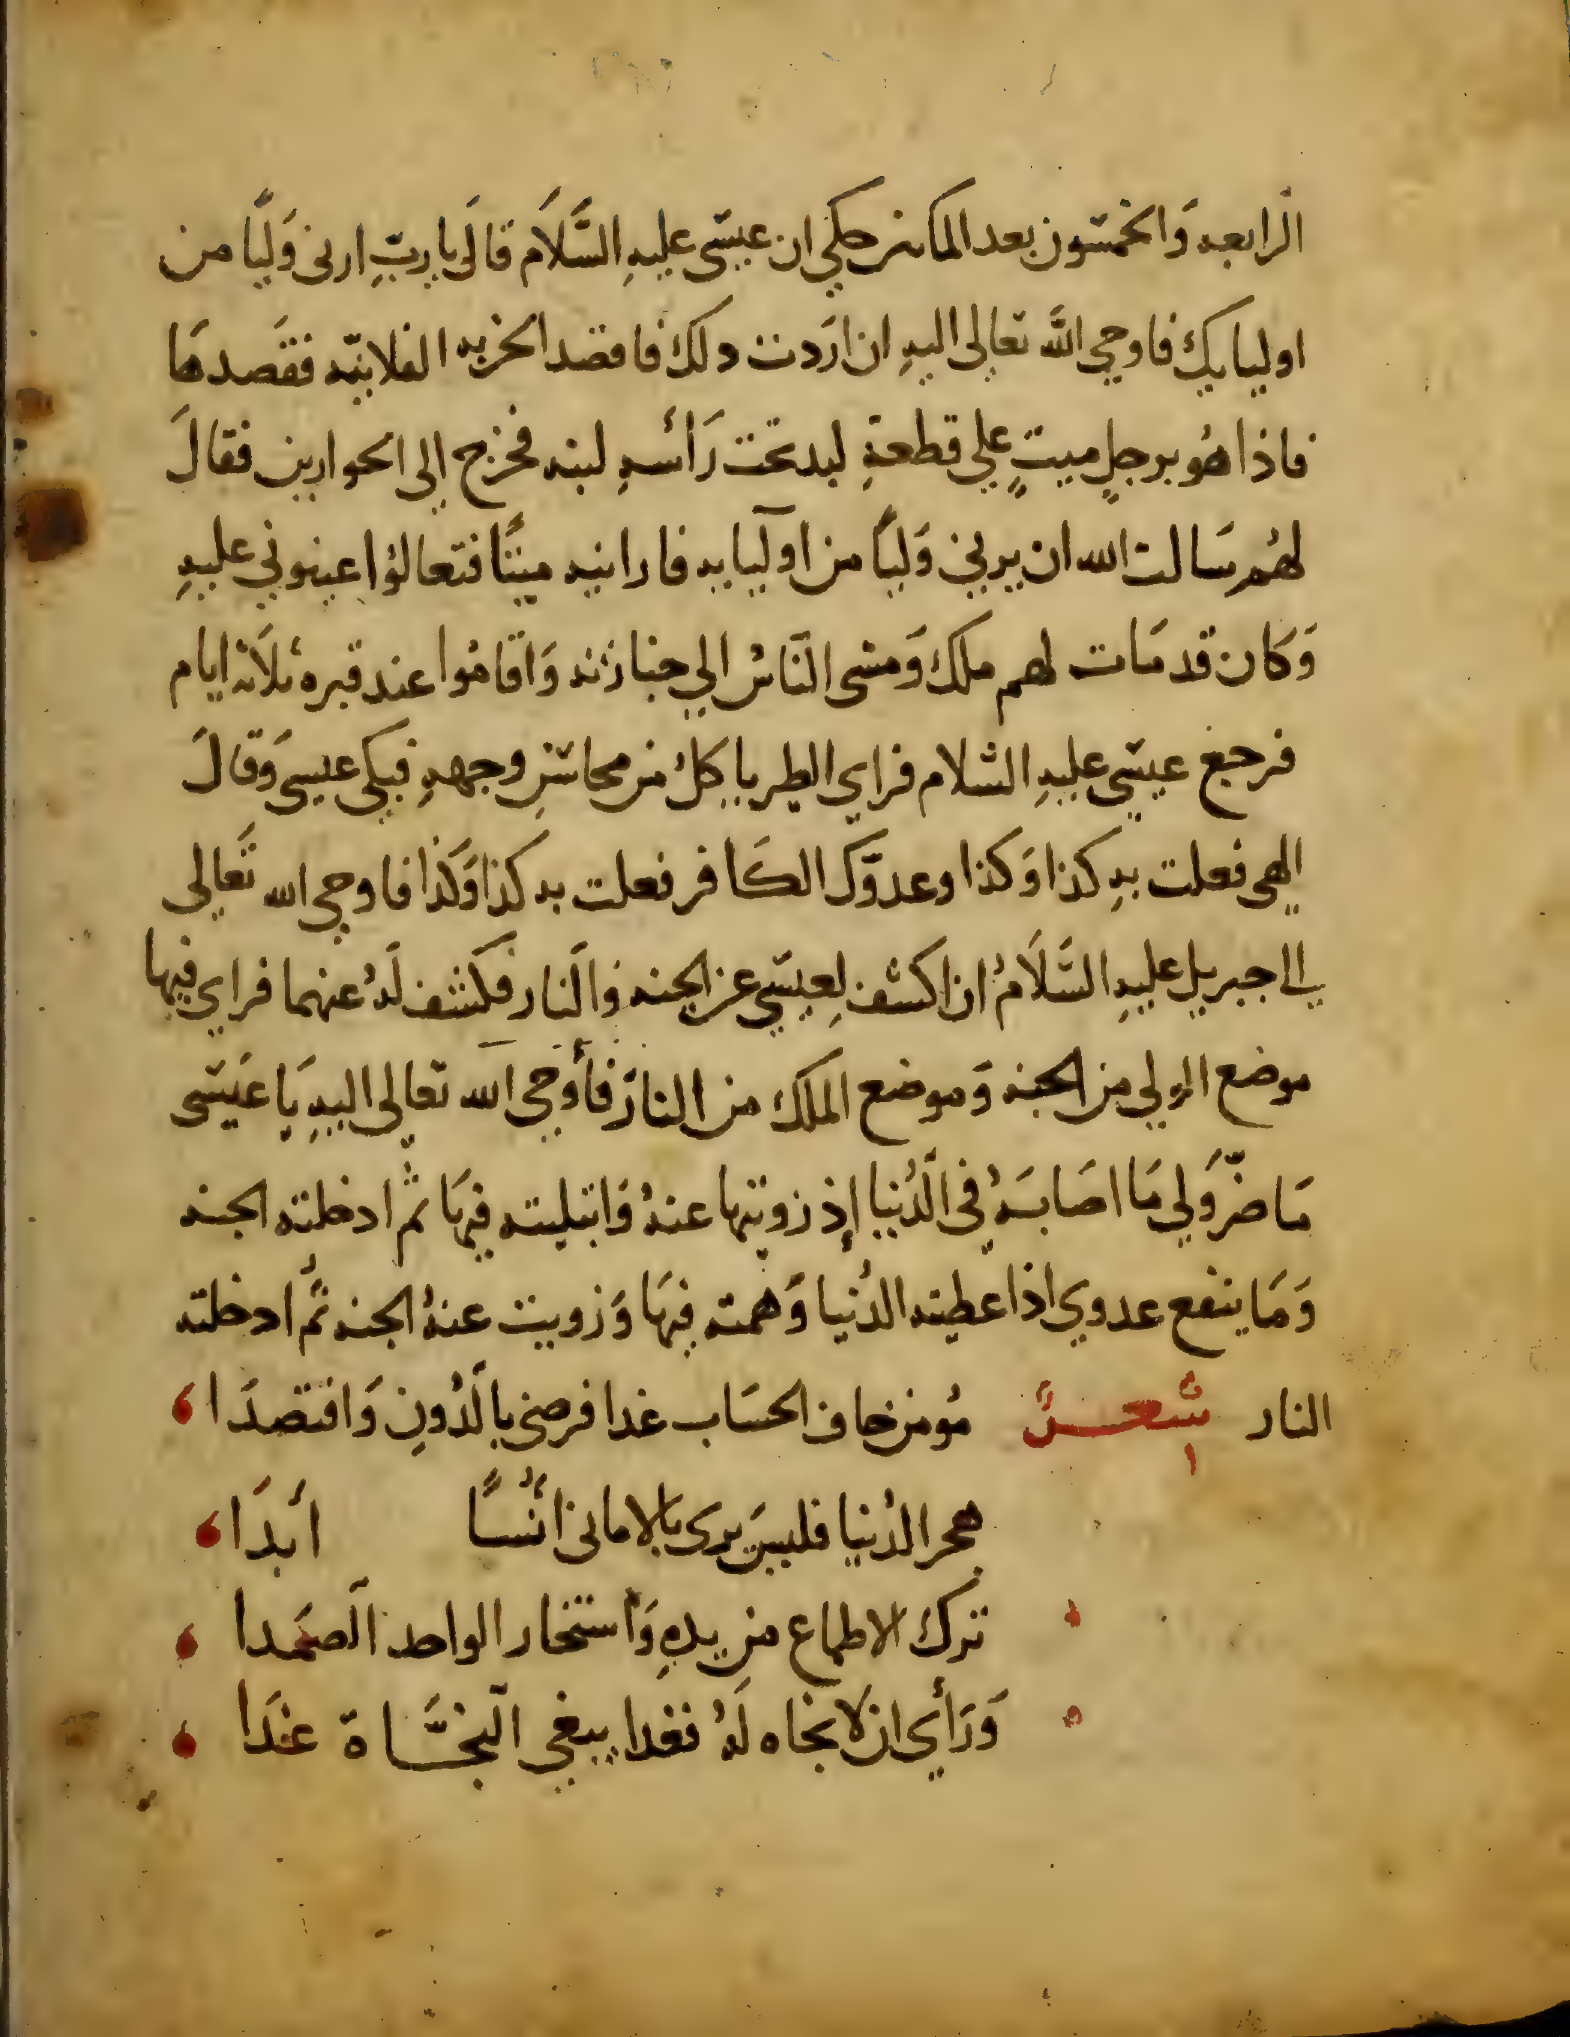 الرابعه وَالخمسون بعد المايتين حكي ان عيسَى عليهِ السَّلَام قالَ يا ربِّ ارنى وَليًا من
اوليايك فاوحي اللَّه تعالى اليهِ ان ارَدت دلك فاقصد الخربه الفلانيّه فقصدهَا
فاذا هُو برجلٍ ميتٍ علي قطعةِ لبد تحت رَأسهِ لبنه فخرج الى الحوارين فقالَ
لهُم سَالت الله ان يريني وَليًا من اوليايه فارانيه ميتًا فتعالوا اعينوني عليهِ
وَكان قد مَات لهم ملك وَمشى النَاسُ الي جنازته وَاقامُوا عند قبره ثلاثه ايام
فرجع عيسَى عليهِ السلام فراي الطير ياكلُ من محاسنِ وجههِ فبكى عيسى وَقالَ
الهى فعلت بهِ كذا وَكذا وعدوّك الكَافر فعلت به كذا وَكذا فاوحى الله تعَالى
الى جبريل عليهِ السَّلَامُ ان اكشف لِعيسَى عن الجنه وَالنار فكشف لهُ عنهما فراي فيها
موضع الولي من الجنه وَموضع الملك من النار فأوحى الله تعالى اليهِ يَا عيَسَى
مَا ضرَّ وَلي مَا اصَابَهُ في الدُنيا إذ زويتها عنهُ وَابتليته فيهَا ثمُ ادخلته الجنه
وَمَا ينفع عدوي اذا عطيته الدُنيا وَهمته فيهَا وَزويت عنهُ الجنه ثمُ ادخلته
النار شعر مُومن خاف الحسَاب غدا فرضي بالدُونِ وَاقتصدَا
هجر الدُنيا فليسَ يرى بالاماني انُسًا أبدَا
ترك الاطماع من يدهِ وَأستخار الواحد الصَمدا
وَرَأي ان لا نجاه لهُ فغدا يبغي النجَّاة غدَا